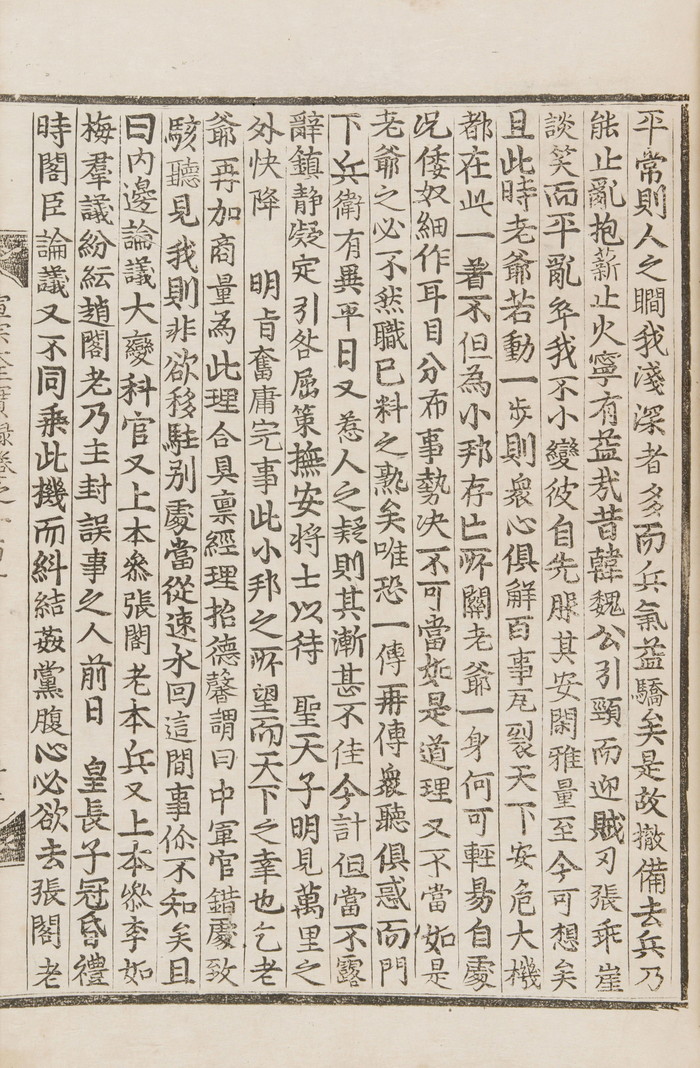 平常則人之瞷我淺深者多而兵氣益驕矣是故撤備去兵乃
能止亂抱薪止火寧有益㢤昔韓魏公引頸而迎賊刃張乖崖
談笑而平亂卒我不小變彼自先服其安閑雅量至今可想矣
且此時老爺若動一步則衆心俱觧百事瓦裂天下安危大機
都在此一着不但為小邦存亡所關老爺一身何可輕易自處
况倭奴細作耳目分布事勢决不可當如是道理又不當如是
老爺之必不然職已料之熟矣唯恐一傳再傳衆聽俱惑而門
下兵衛有異平日又惹人之疑則其漸甚不佳今計但當不露
辭鎭静凝定引咎屈策撫安將士以待　聖天子明見萬里之
外快降　明旨奮庸完事此小邦之所望而天下之幸也乞老
爺再加商量為此理合具稟經理招德馨謂曰中軍官錯處致
駭聽見我則非欲移駐別處當從速水回這間事你不知矣且
曰内邊論議大變科官又上本叅張閣老本兵又上本叅李如
梅羣議紛紜趙閣老乃主封誤事之人前日　皇長子冠昏禮
時閣臣論議又不同乘此機而糾結姦黨腹心必欲去張閣老